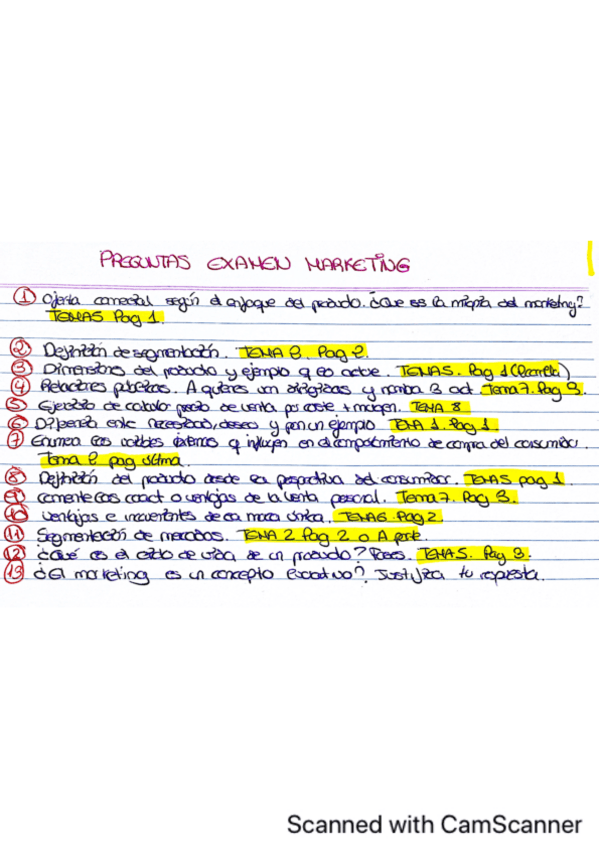 PREGUNTAS EXAMEN MARKETING
① Oferta comercial según el enfoque del producto. ¿Que es la miopía del marketing?
TEMA5 Pag 1.
② Definición de segmentación. TEMA 2. Pag 2.
③ Dimensiones del producto y ejemplo q lo aclare. TEMA5. Pag 1 (Paralela)
④ Relaciones públicas. A quienes van dirigidas y nombra 3 act. Tema 7. Pag 3.
⑤ Ejercicio de calculo precio de venta por coste + margen. TEMA 8
⑥ Diferencia entre necesidad, deseo y pon un ejemplo. TEMA 1. Pag 1.
⑦ Enumera las variables externas q influyen en el comportamiento de compra del consumidor.
Tema 2 pag última.
⑧ Definición del producto desde la perspectiva del consumidor. TEMA5 pag 1.
⑨ Comente las caract o ventajas de la venta personal. Tema 7. Pag 3.
⑩ Ventajas e inconvenientes de la marca única. TEMA6. Pag 2.
⑪ Segmentación de mercados. TEMA 2 Pag 2 o A parte.
⑫ ¿Qué es el ciclo de vida de un producto? Fases. TEMA 5. Pag 3.
⑬ ¿El marketing es un concepto evolutivo? Justifica tu respuesta.
Scanned with CamScanner